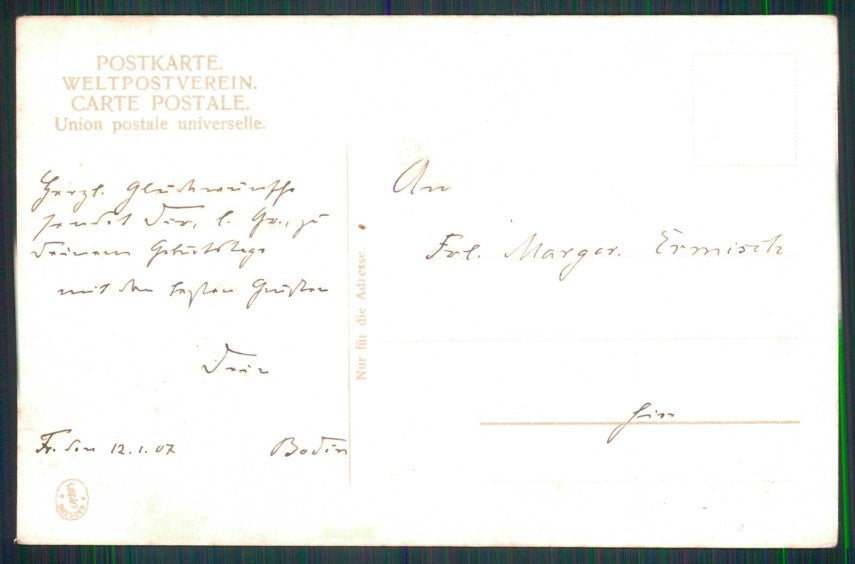 POSTKARTE.
WELTPOSTVEREIN.
CARTE POSTALE.
Union postale universelle.
Herzl. Glückwünsche
sendet Dir, l. Gr., zu
deinem Geburtstage
mit den besten Grüßen
Dein
Fr. den 12.1.07
An
Frl. Margar. Ermisch
hier
Nur für die Adresse.
DRESDEN